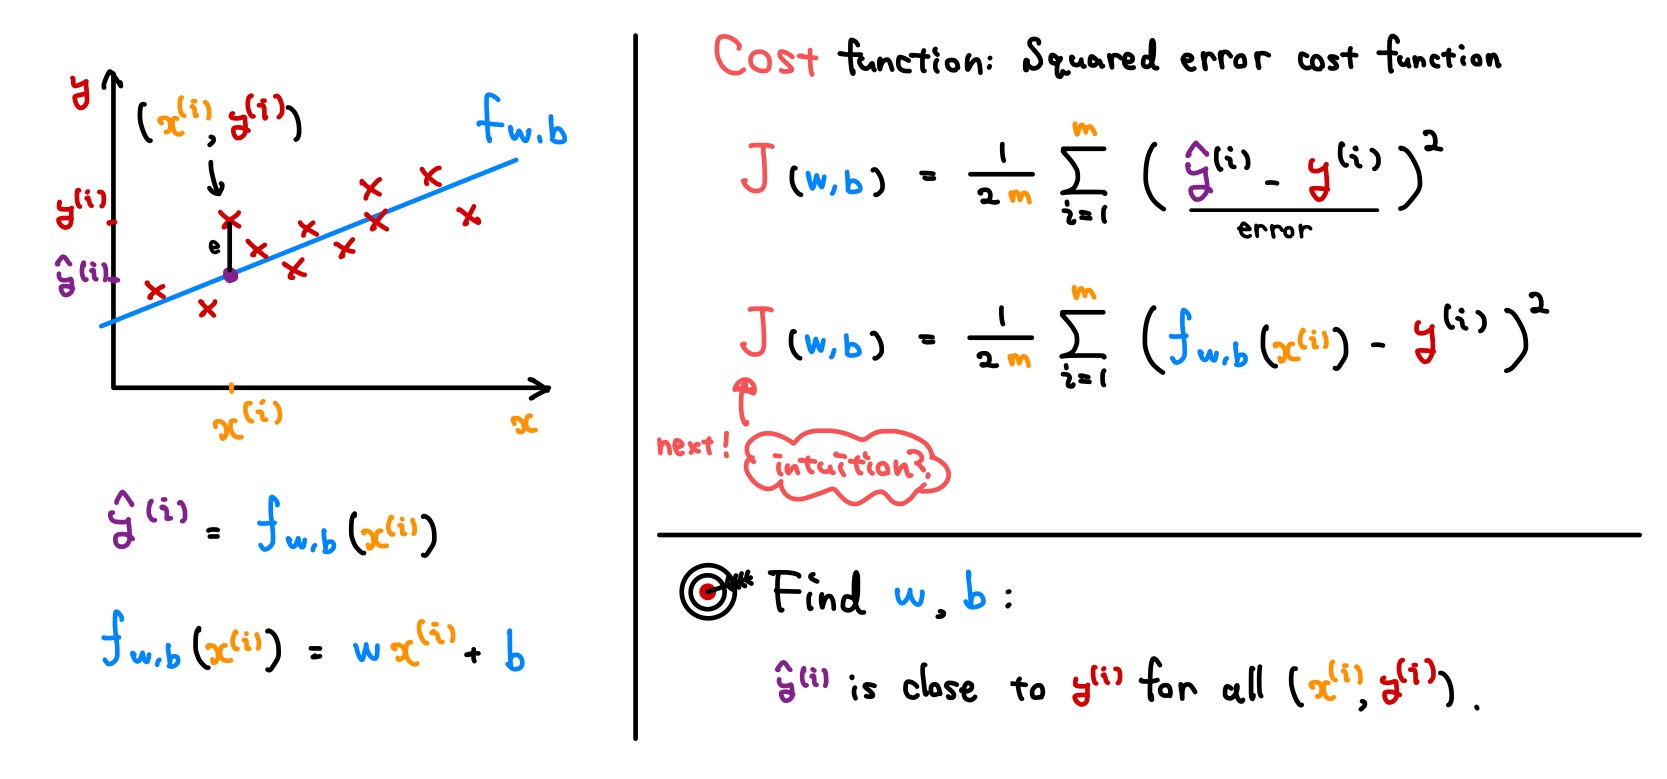 y
(x⁽ⁱ⁾, y⁽ⁱ⁾)
f w,b
y⁽ⁱ⁾
e
ŷ⁽ⁱ⁾
x⁽ⁱ⁾
x
ŷ⁽ⁱ⁾ = f w,b (x⁽ⁱ⁾)
f w,b (x⁽ⁱ⁾) = w x⁽ⁱ⁾ + b
Cost function: Squared error cost function
J (w,b) = 1/2m ∑ i=1 m (ŷ⁽ⁱ⁾ - y⁽ⁱ⁾)²
error
J (w,b) = 1/2m ∑ i=1 m (f w,b (x⁽ⁱ⁾) - y⁽ⁱ⁾)²
next!
intuition?
Find w, b:
ŷ⁽ⁱ⁾ is close to y⁽ⁱ⁾ for all (x⁽ⁱ⁾, y⁽ⁱ⁾).